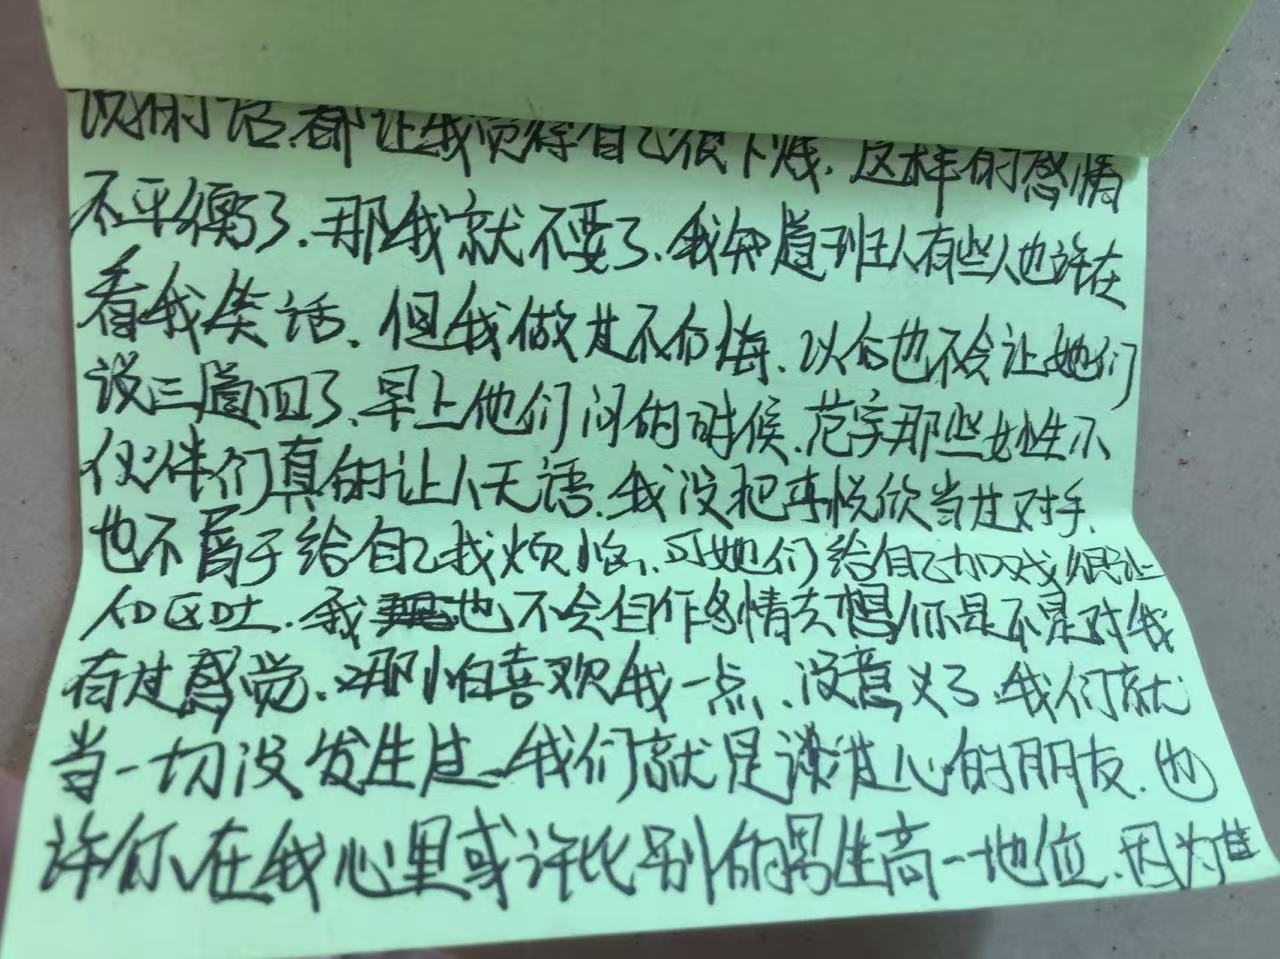 说的话.都让我觉得自己很下贱.这样的感情
不平衡了.那我就不要了.我知道班人有些人也许在
看我笑话.但我做过不后悔.以后也不会让她们
说三道四了.早上他们问的时候.范字那些女性小
伙伴们真的让人无语.我没把李悦欣当过对手.
也不屑于给自己找烦恼.可她们给自己加戏很让
人呕吐.我也不会自作多情去想你是不是对我
有过感觉.哪怕喜欢我一点.没意义了.我们就
当一切没发生过.我们就是谈过心的朋友.也
许你在我心里或许比别的男生高一地位.因为